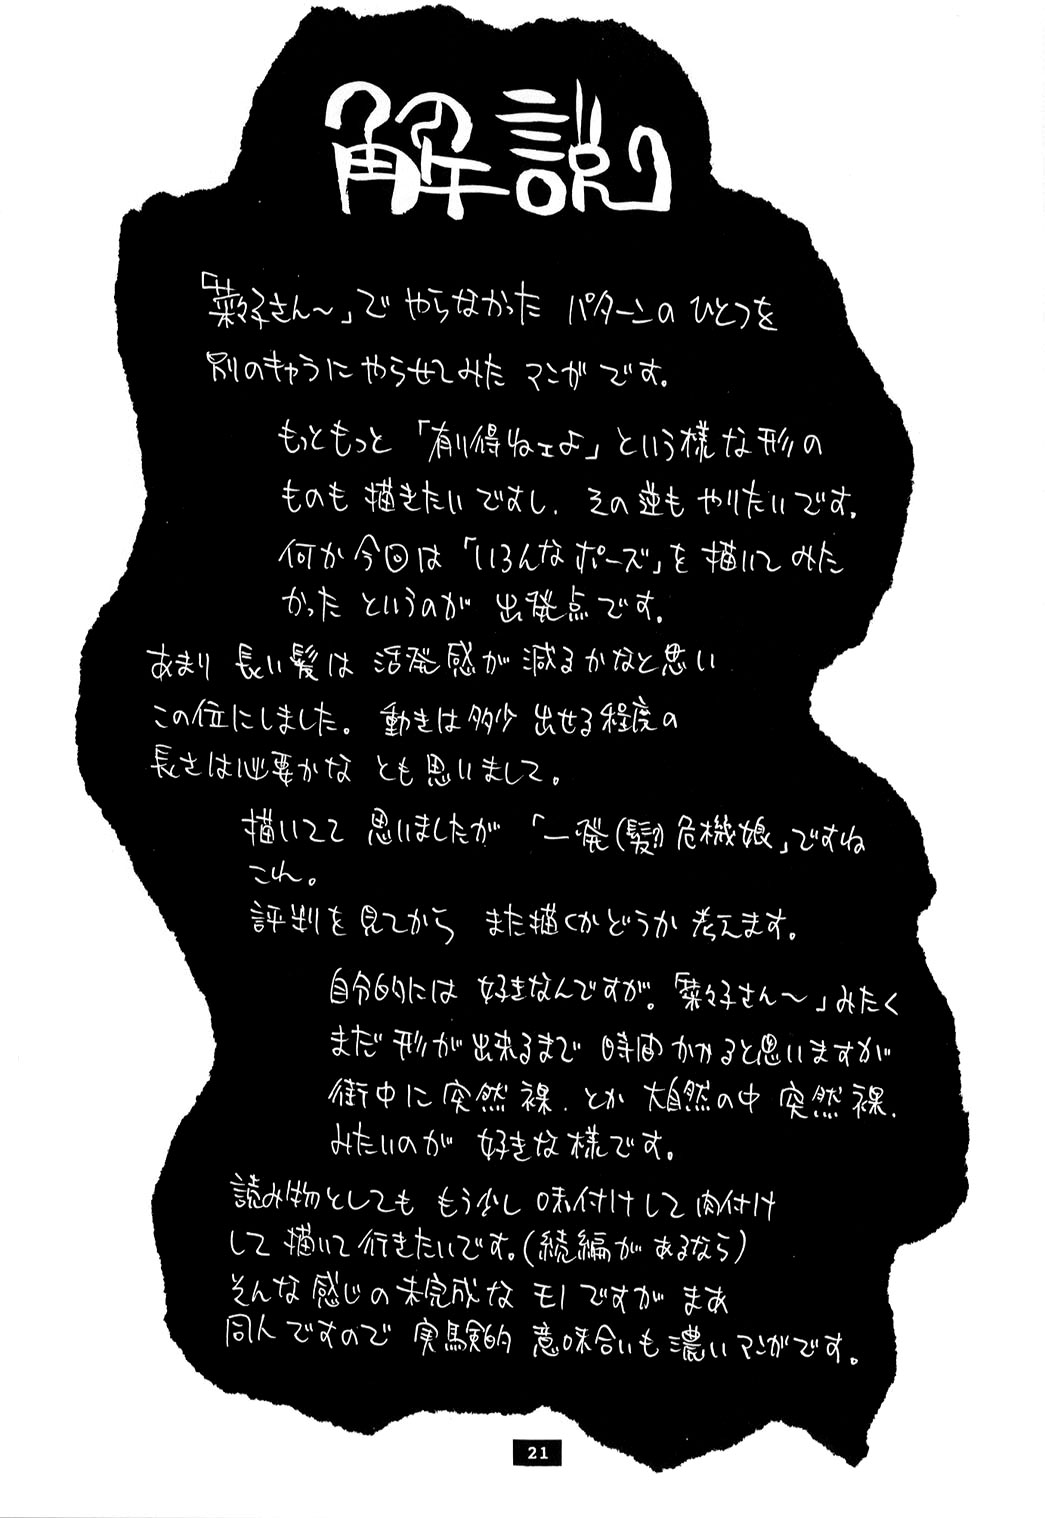 解説
「菜々子さん～」で やらなかった パターンの ひとつを
別のキャラにやらせてみた マンガです。
もっともっと 「有り得ねェよ」という様な形の
ものも 描きたいですし、その逆も やりたいです。
何か今回は「いろんなポーズ」を 描いて みた
かった というのが 出発点です。
あまり 長い髪は 活発感が 減るかなと思い
この位にしました。動きは多少 出せる程度の
長さは必要かな とも思いまして。
描いてて 思いましたが 「一発(髪)危機娘」ですね
これ。
評判を見てから また描くかどうか 考えます。
自分的には 好きなんですが。「菜々子さん～」みたく
まだ 形が出来るまで 時間かかると思いますが
街中に 突然 裸、とか 大自然の中 突然 裸、
みたいのが 好きな様です。
読み物としても もう少し 味付けして 肉付け
して 描いて行きたいです。(続編が あるなら)
そんな感じの 未完成な モノですが まあ
同人ですので 実験的 意味合いも濃いマンガです。
21